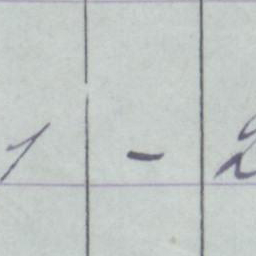 1 - 2